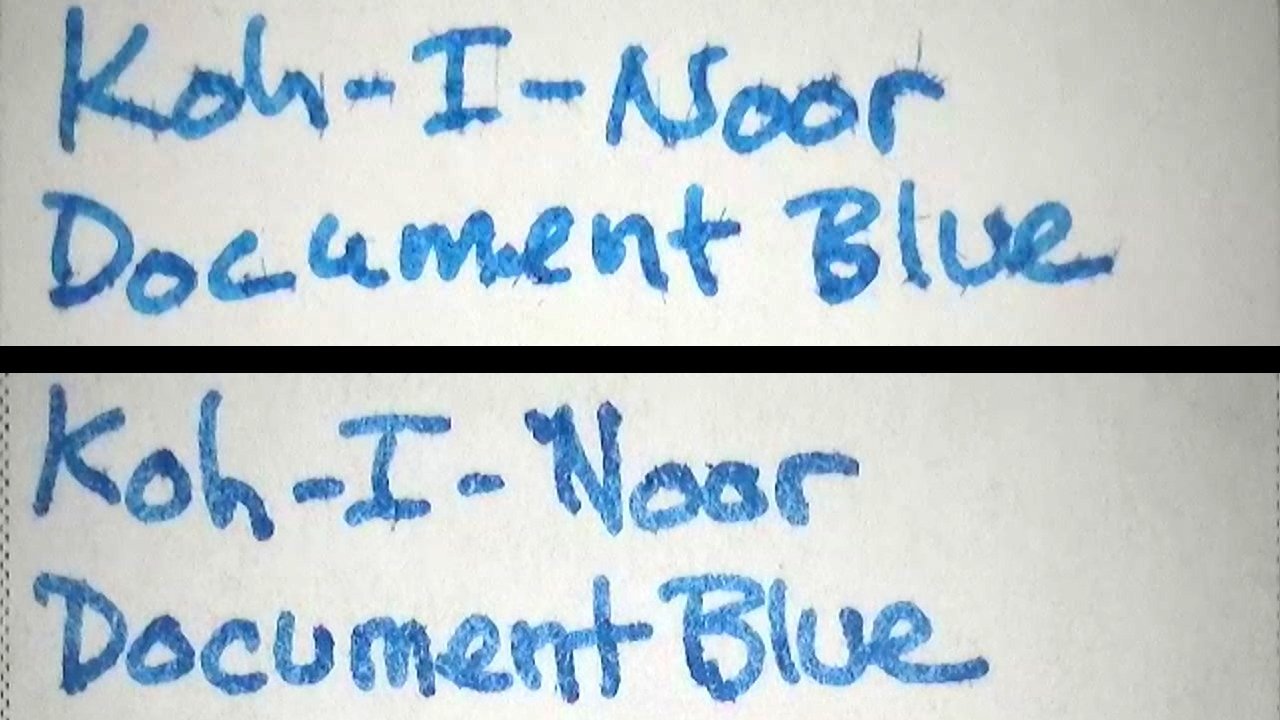 Koh-I-Noor
Document Blue
Koh-I-Noor
Document Blue